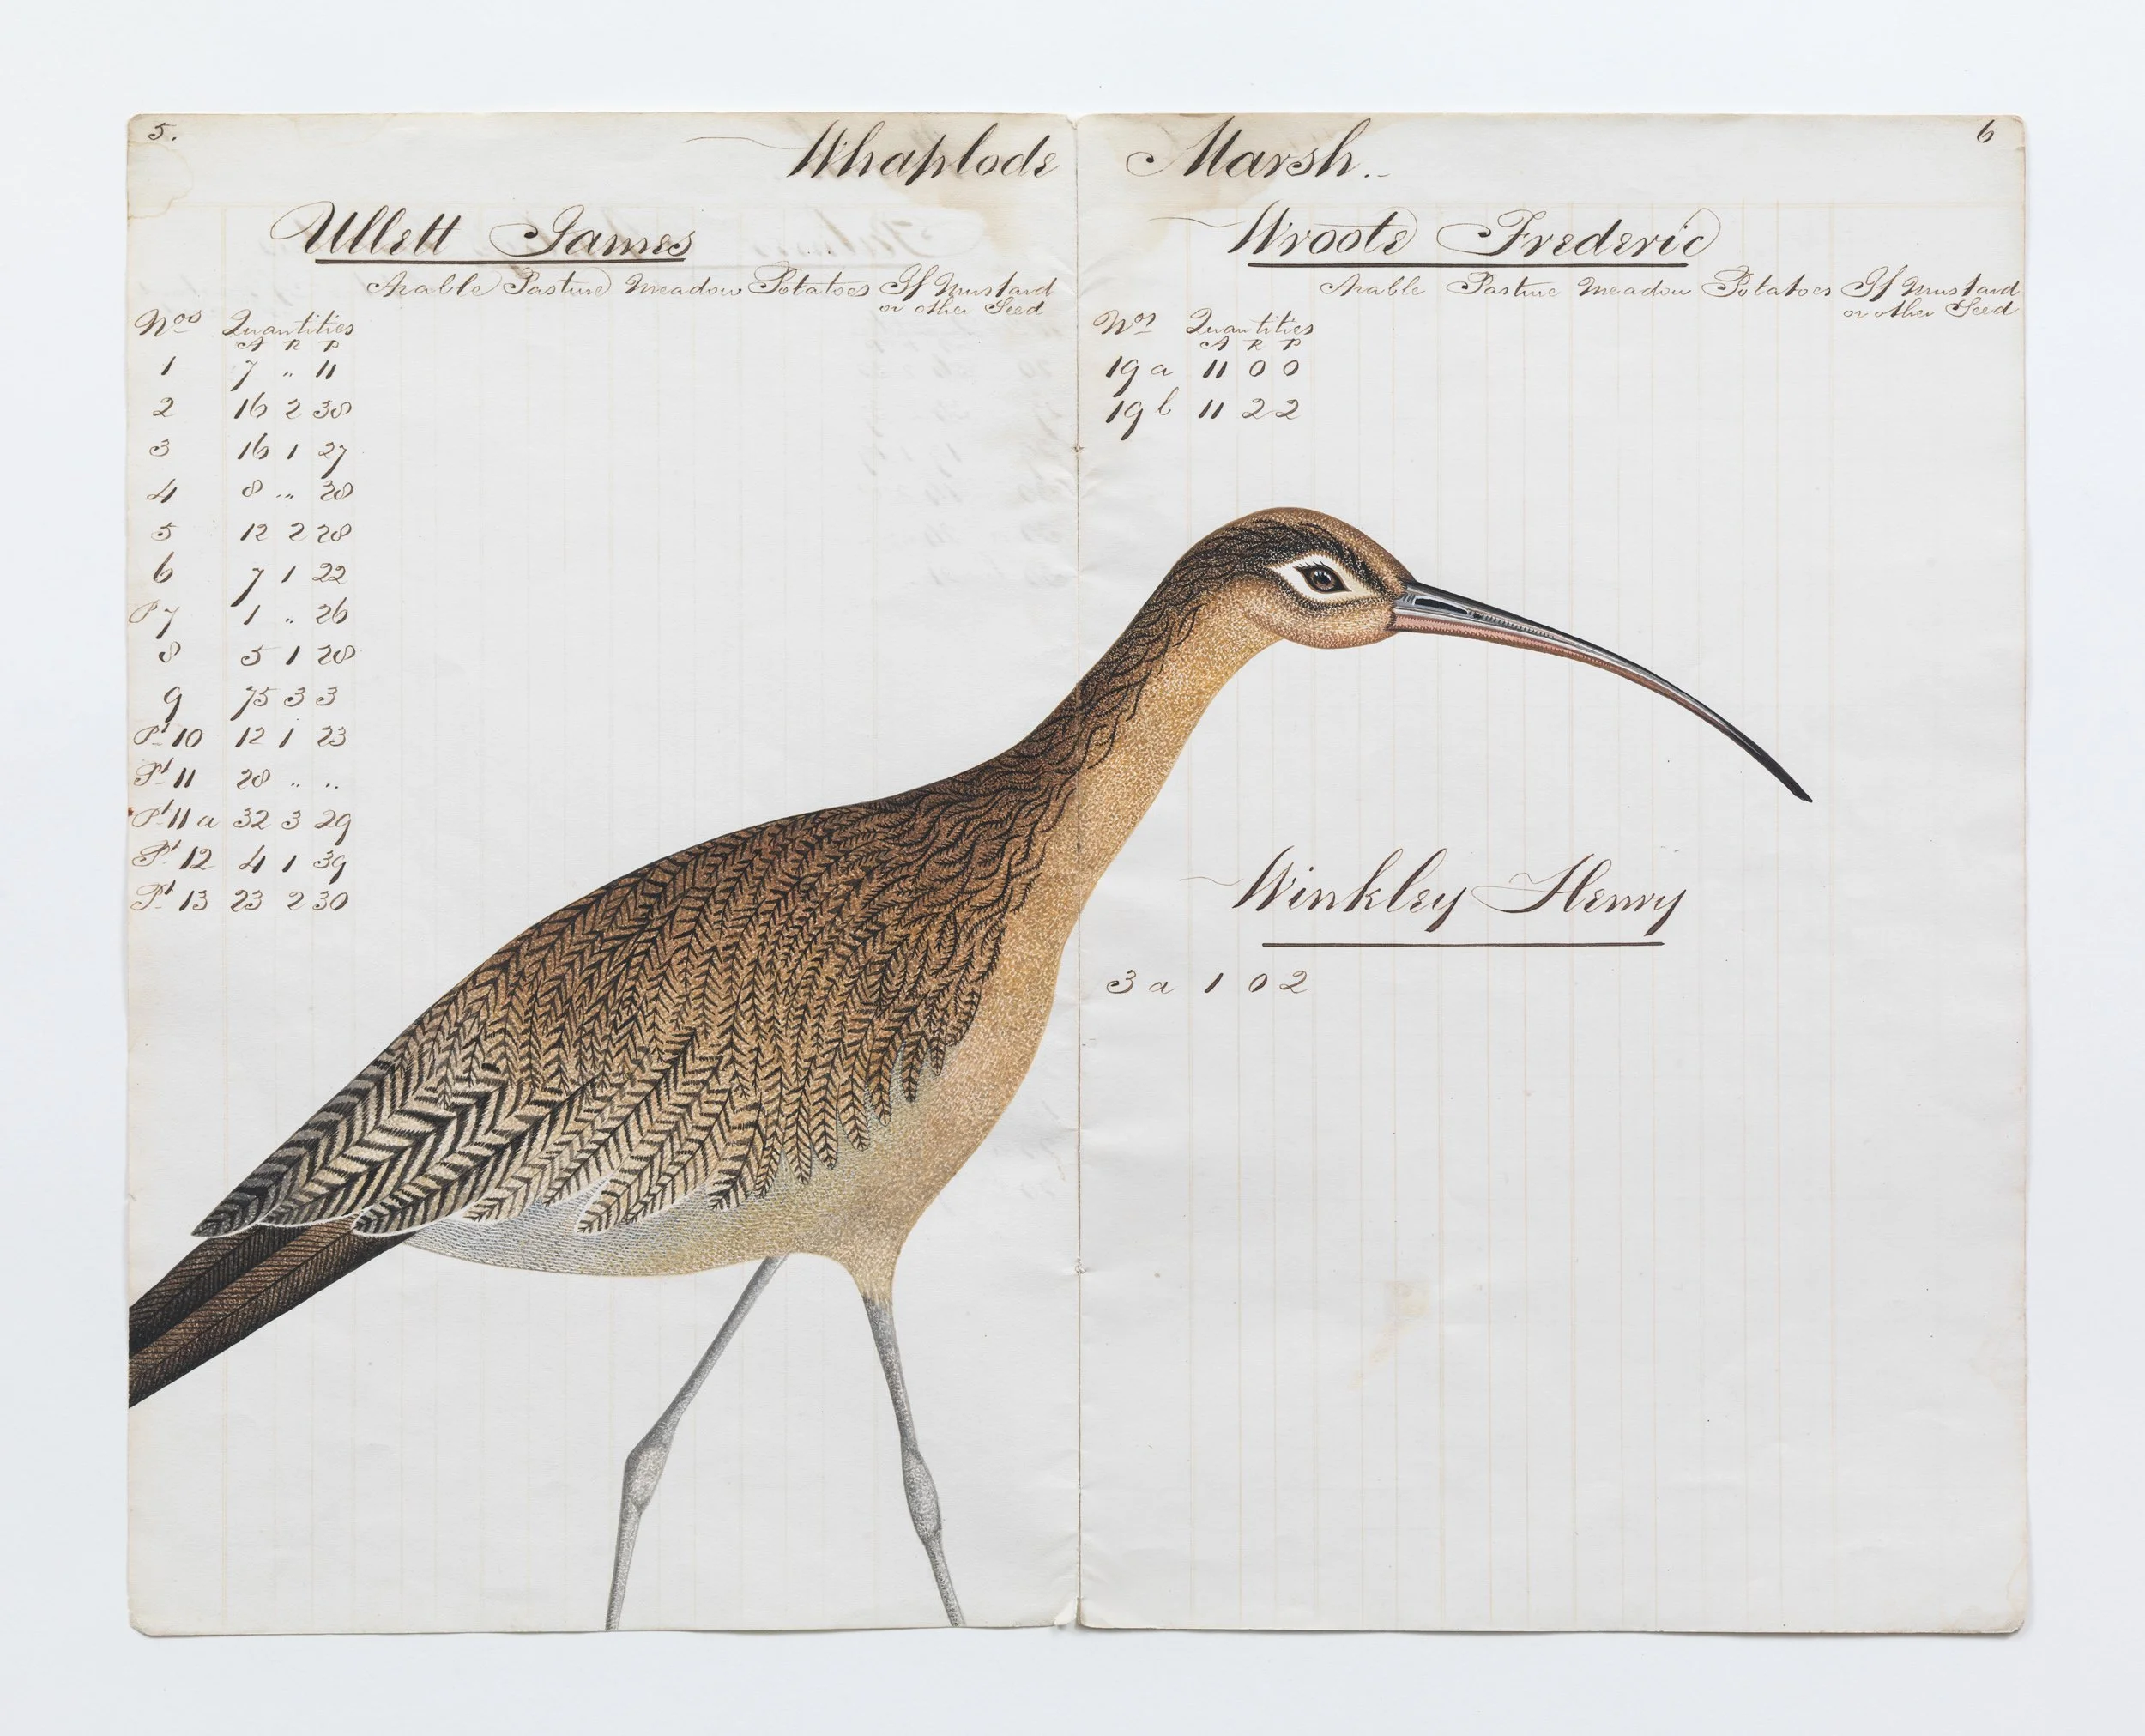 5.
Whaplode Marsh..
6
Ullett James
Arable Pasture Meadow Potatoes If Mustard
or other Seed
Nos Quantities
A R P
1 7 " 11
2 16 2 38
3 16 1 27
4 8 " 38
5 12 2 28
6 7 1 22
P 7 1 " 26
8 5 1 28
9 75 3 3
Pt 10 12 1 23
Pt 11 28 " "
Pt 11 a 32 3 29
Pt 12 4 1 39
Pt 13 23 2 30
Wroote Frederic
Arable Pasture Meadow Potatoes If Mustard
or other Seed
Nos Quantities
A R P
19 a 11 0 0
19 b 11 2 2
Winkley Henry
3 a 1 0 2